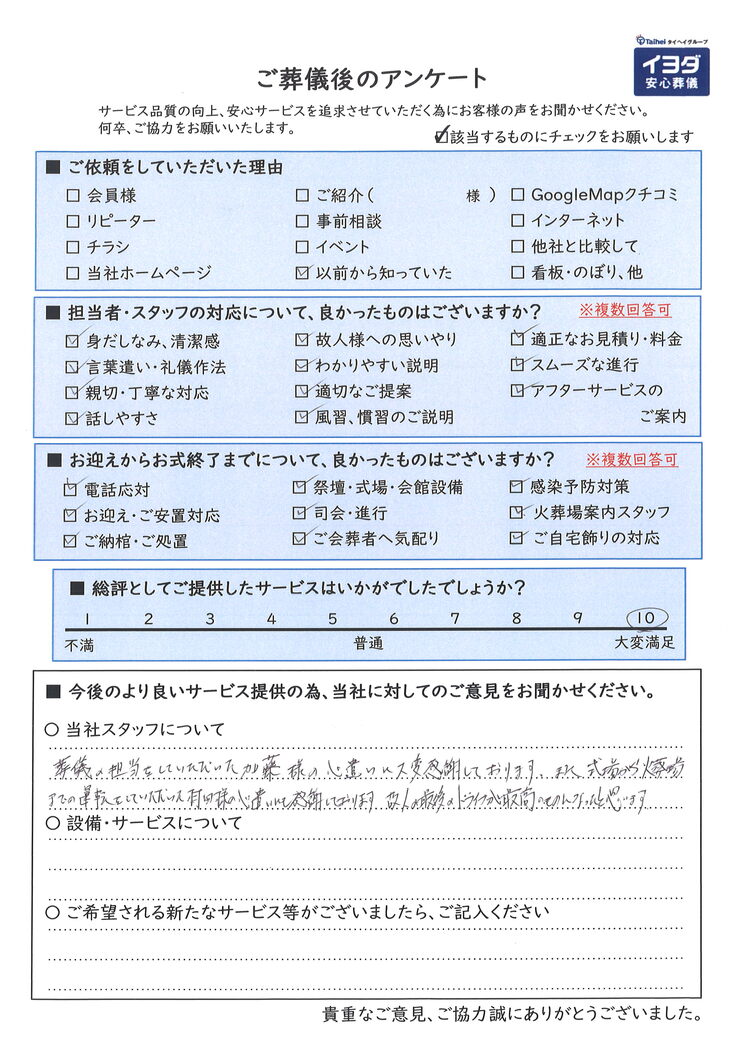 Taihei タイヘイグループ
イヨダ
安心葬儀
ご葬儀後のアンケート
サービス品質の向上、安心サービスを追求させていただく為にお客様の声をお聞かせください。
何卒、ご協力をお願いいたします。
☑該当するものにチェックをお願いします
■ ご依頼をしていただいた理由
□ 会員様 □ ご紹介( 様 ) □ GoogleMapクチコミ
□ リピーター □ 事前相談 □ インターネット
□ チラシ □ イベント □ 他社と比較して
□ 当社ホームページ ☑ 以前から知っていた □ 看板・のぼり、他
■ 担当者・スタッフの対応について、良かったものはございますか? ※複数回答可
☑ 身だしなみ、清潔感 ☑ 故人様への思いやり ☑ 適正なお見積り・料金
☑ 言葉遣い・礼儀作法 ☑ わかりやすい説明 ☑ スムーズな進行
☑ 親切・丁寧な対応 ☑ 適切なご提案 ☑ アフターサービスの
☑ 話しやすさ ☑ 風習、慣習のご説明 ご案内
■ お迎えからお式終了までについて、良かったものはございますか? ※複数回答可
☑ 電話応対 ☑ 祭壇・式場・会館設備 ☑ 感染予防対策
☑ お迎え・ご安置対応 ☑ 司会・進行 ☑ 火葬場案内スタッフ
☑ ご納棺・ご処置 ☑ ご会葬者へ気配り ☑ ご自宅飾りの対応
■ 総評としてご提供したサービスはいかがでしたでしょうか?
1 2 3 4 5 6 7 8 9 10
不満 普通 大変満足
■ 今後のより良いサービス提供の為、当社に対してのご意見をお聞かせください。
○ 当社スタッフについて
葬儀の担当をしていただいた加藤様の心遣いに大変感謝しております。また、式場から火葬場
までの運転をしていただいた様の心遣いにも感謝しております 故人の最後のドライブが最高のものになったと思います
○ 設備・サービスについて
○ ご希望される新たなサービス等がございましたら、ご記入ください
貴重なご意見、ご協力誠にありがとうございました。